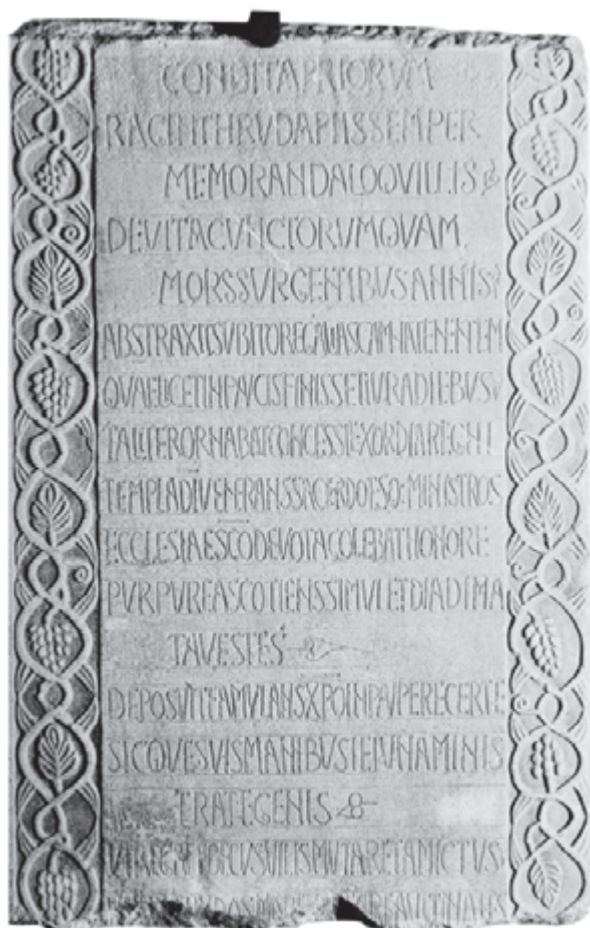 CONDITAPRIORVM
RACINTHRVDAPIISSEMPER
MEMORANDALOQVILLIS
DEVITACVNCTORVMQVAM
MORSSVRGENTIBVSANNIS
ABSTRAXITSVBITOREGALIASCAMNATENENTEM
QVAELICETINPAVCISFINISSETIVRADIEBVS
TALITERORNABATCONCESSIEXORDIAREGNI
TEMPLADIVENERANSSACERDOTESQ:MINISTROS
ECCLESIAESCODEVOTACOLEBATHONORE
PVRPVREASCOTIENSSIMVLETDIADIMA
TAVESTES
DEPOSVITFAMVLANSXPOINPAVPERECERTE
SICQVESVISMANIBVSIEIVNAMINIS
TRATEGENIS
DECVSVILISMVTARETAMICTVS